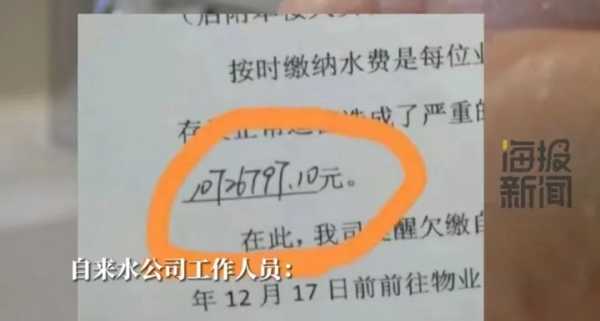 （后附
按时缴纳水费是每位业
存 正常 造成了严重的
海报
新闻
10726797.10元。
在此，我司 醒欠缴自
自来水公司工作人员：
年 12 月 17 日前前往物业